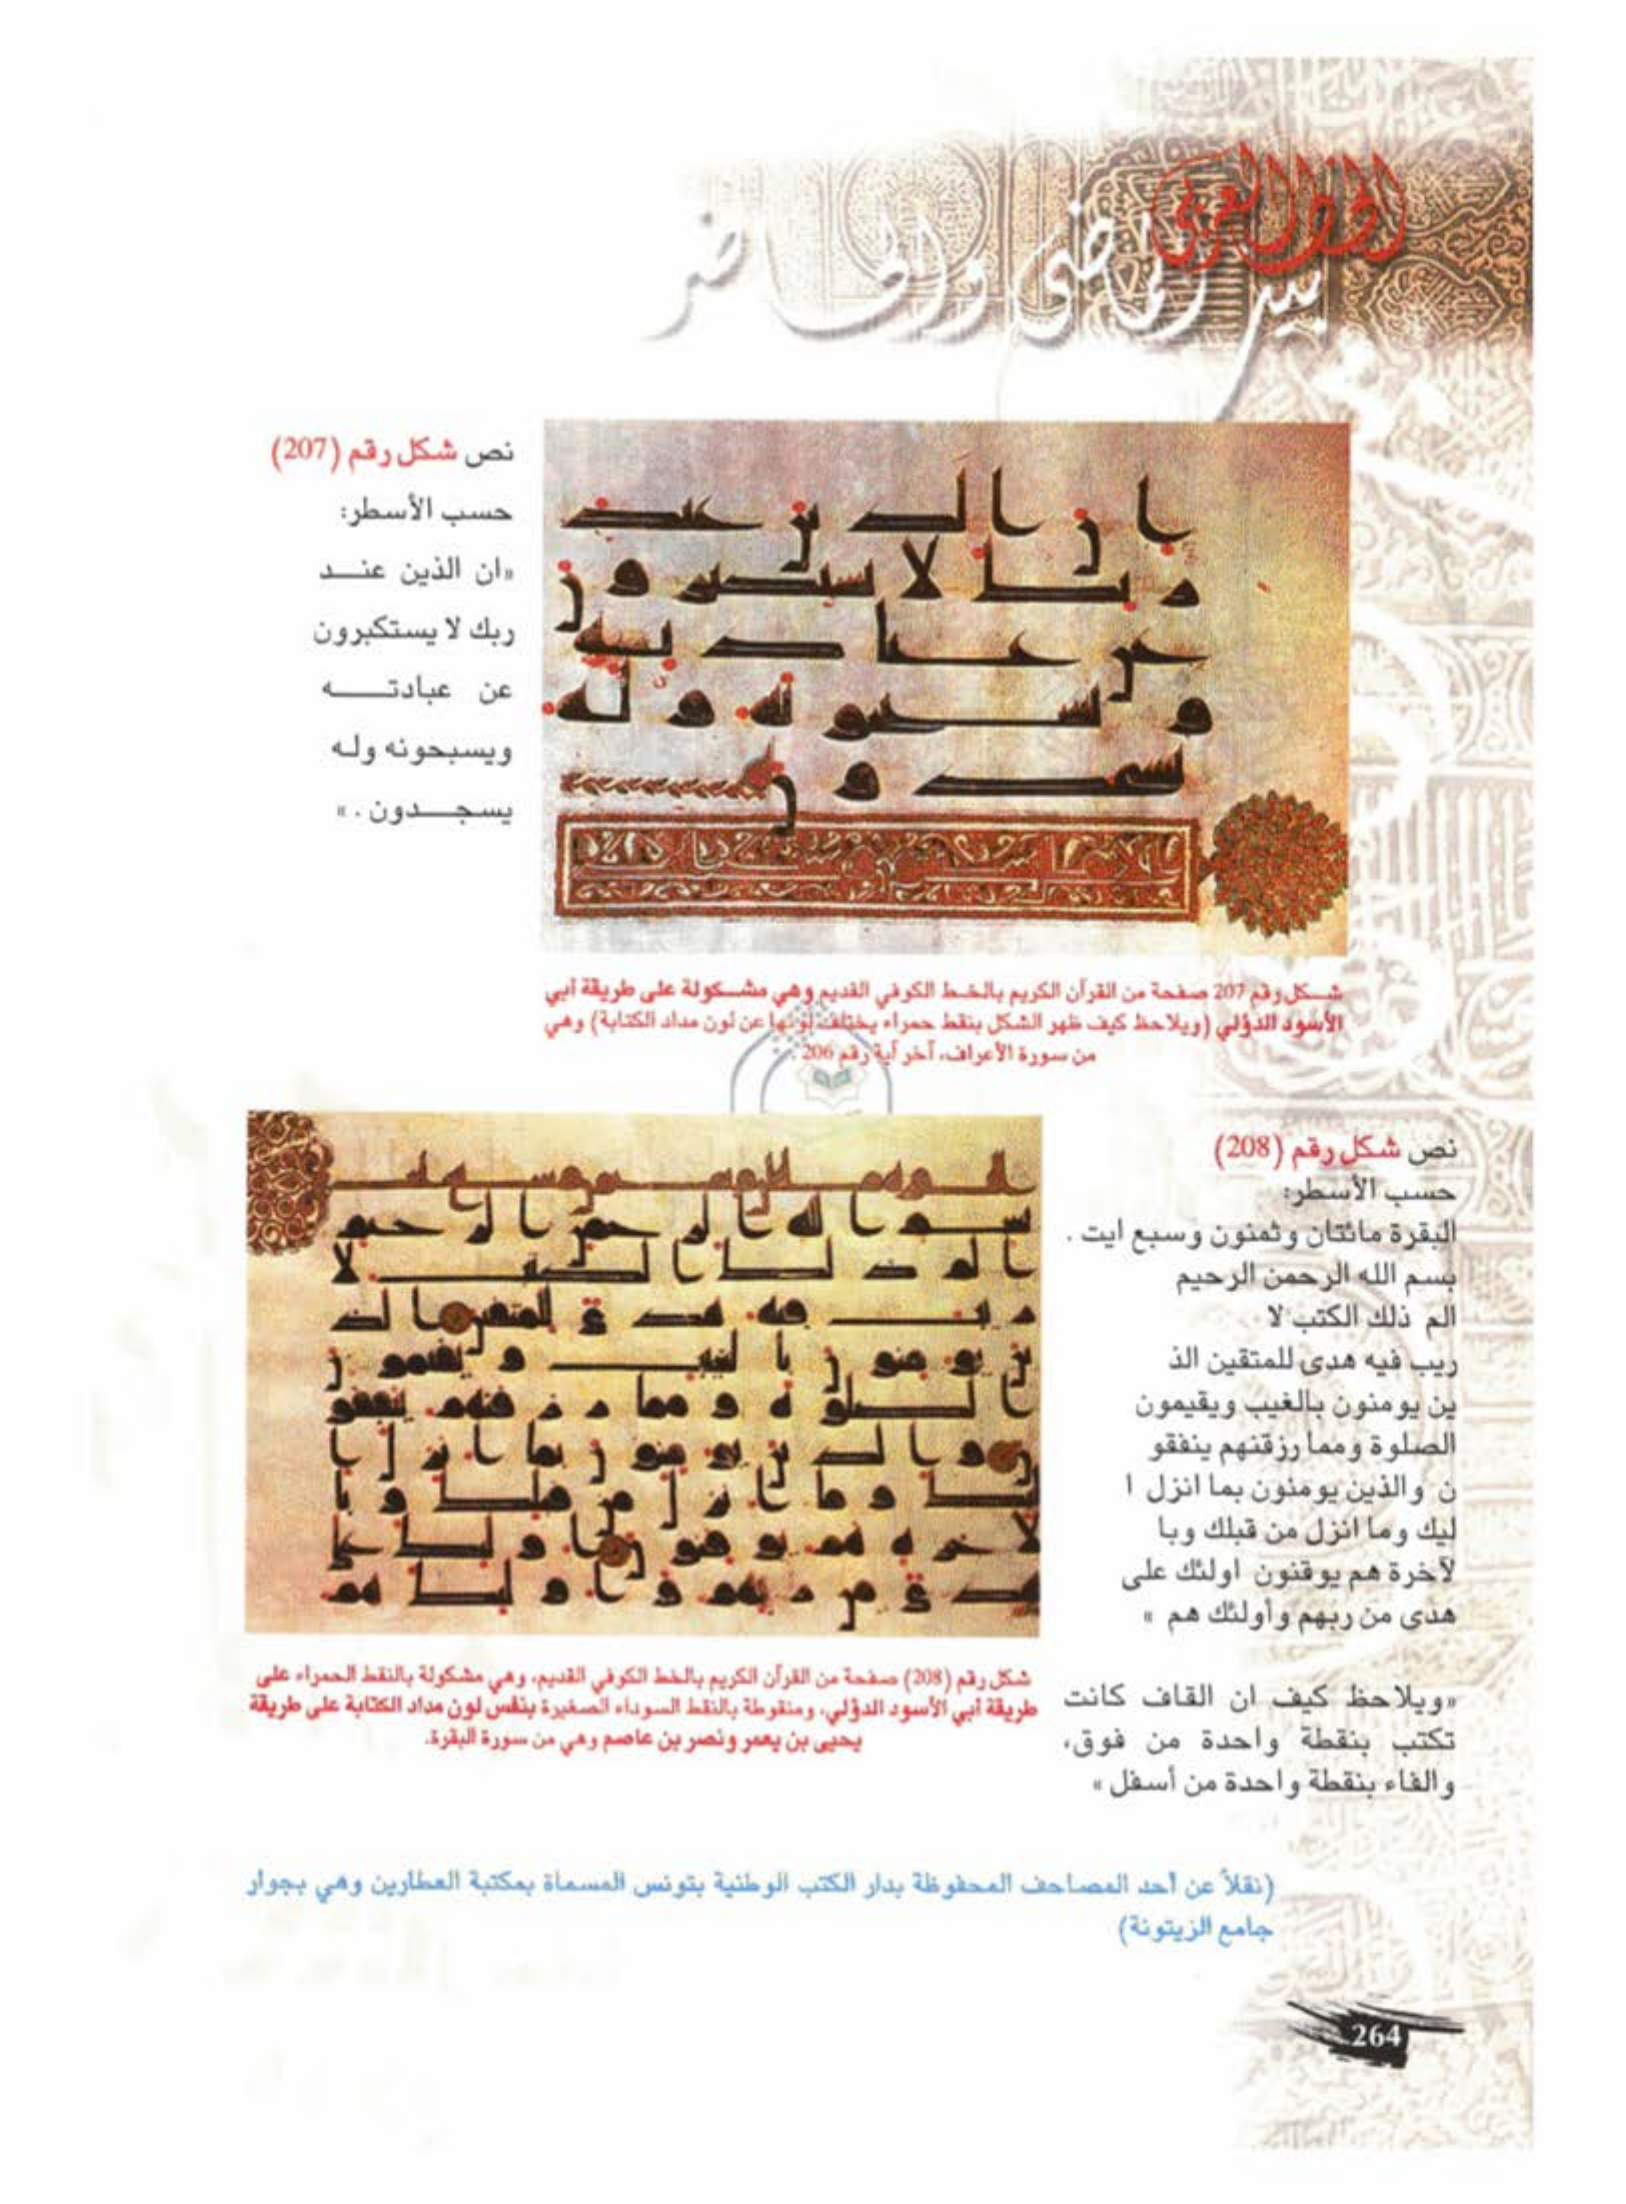 الخط العربي
بين الماضي والحاضر
نص شكل رقم (207)
حسب الأسطر:
«ان الذين عنــد
ربك لا يستكبرون
عن عبادتــــه
ويسبحونه وله
يسجــدون . »
شــكل رقم 207 صفحة من القرآن الكريم بالخــط الكوفي القديم وهي مشــكولة على طريقة أبي
الأسود الدؤلي (ويلاحظ كيف ظهر الشكل بنقط حمراء يختلف لونها عن لون مداد الكتابة) وهي
من سورة الأعراف، آخر آية رقم 206 .
نص شكل رقم (208)
حسب الأسطر:
البقرة مائتان وثمنون وسبع ايت .
بسم الله الرحمن الرحيم
الم ذلك الكتب لا
ريب فيه هدى للمتقين الذ
ين يومنون بالغيب ويقيمون
الصلوة ومما رزقنهم ينفقو
ن والذين يومنون بما انزل ا
ليك وما انزل من قبلك وبا
لآخرة هم يوقنون اولئك على
هدى من ربهم وأولئك هم »
«ويلاحظ كيف ان القاف كانت
تكتب بنقطة واحدة من فوق،
والفاء بنقطة واحدة من أسفل »
شكل رقم (208) صفحة من القرآن الكريم بالخط الكوفي القديم، وهي مشكولة بالنقط الحمراء على
طريقة أبي الأسود الدؤلي، ومنقوطة بالنقط السوداء الصغيرة بنفس لون مداد الكتابة على طريقة
يحيى بن يعمر ونصر بن عاصم وهي من سورة البقرة.
(نقلاً عن أحد المصاحف المحفوظة بدار الكتب الوطنية بتونس المسماة بمكتبة العطارين وهي بجوار
جامع الزيتونة)
264